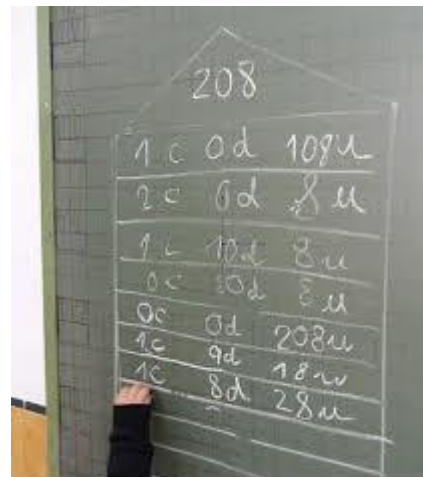 208
1 c 0d 108u
2 c 0d 8u
1c 10d 8u
0c 20d 8u
0c 0d 208u
1c 9d 18u
1c 8d 28u